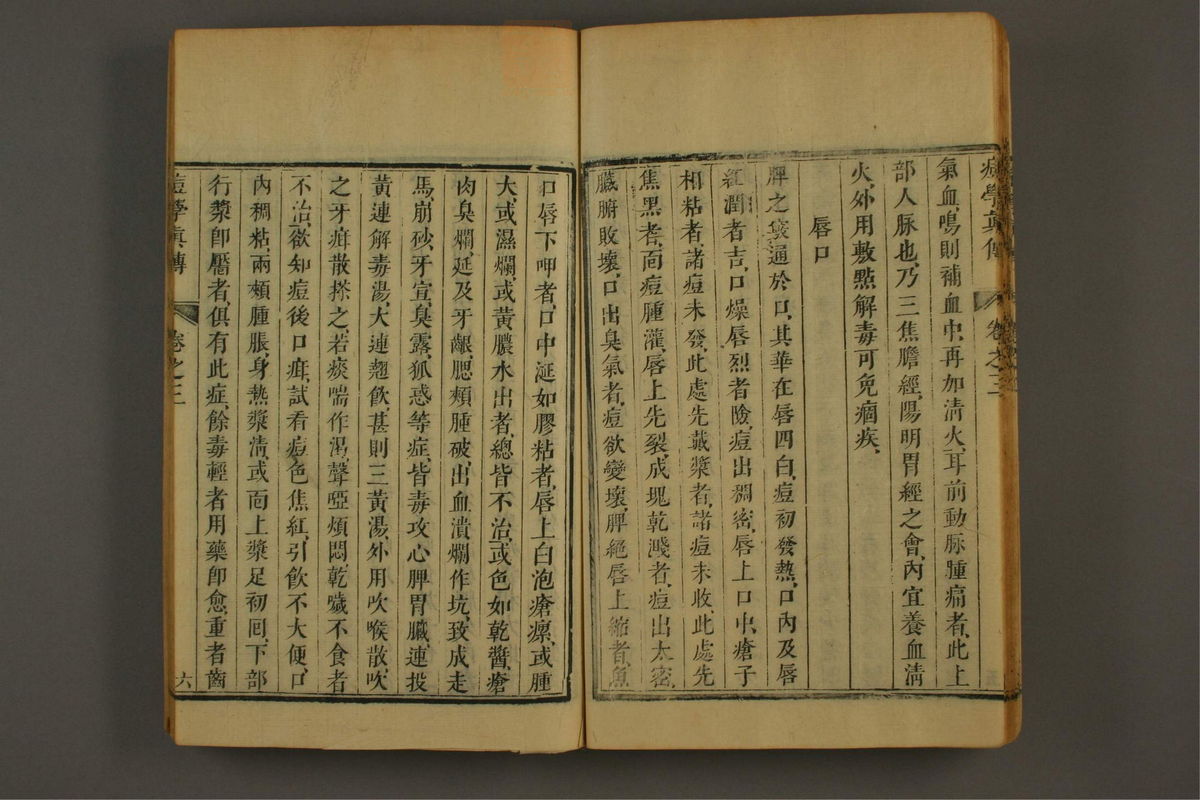 痘學眞傳 卷之三 五
氣血,鳴則補血中,再加淸火,耳前動脉腫痛者,此上
部人脉也,乃三焦膽經,陽明胃經之會,內宜養血淸
火,外用敷點解毒可免痼疾,
唇口
脾之竅通於口,其華在唇四白,痘初發熱,口內及唇
紅潤者吉,口燥唇烈者險,痘出稠密,唇上口中,瘡子
相粘者,諸痘未發,此處先戴漿者,諸痘未收,此處先
焦黑者,面痘腫灌,唇上先裂,成塊乾濺者,痘出太密,
臟腑敗壞,口出臭氣者,痘欲變壞,脾絕唇上縮者,魚
口唇下呷者,口中涎如膠粘者,唇上白泡瘡瘰,或腫
大,或濕爛或黃膿水出者,總皆不治,或色如乾醬,瘡
肉臭爛延及牙齦,腮頰腫破出血潰爛作坑,致成走
馬,崩砂,牙宣,臭露,狐惑等症,皆毒攻心脾胃臟,連投
黃連解毒湯,大連翹飲,甚則三黃湯,外用吹喉散吹,
之牙疳散搽之,若痰喘作渴,聲啞煩悶,乾噦不食者
不治,欲知痘後口疳,試看痘色焦紅,引飲不大便,口
內稠粘,兩頰腫脹,身熱漿淸,或面上漿足初囘,下部
行漿卽靨者,俱有此症,餘毒輕者用藥卽愈,重者齒
痘學眞傳 卷之三 六